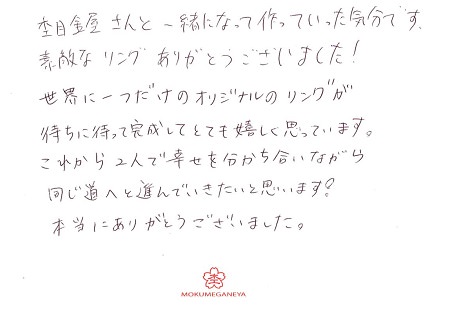 杢目金屋さんと一緒になって作っていった気分です。
素敵なリングありがとうございました!
世界に一つだけのオリジナルのリングが
待ちに待って完成してとても嬉しく思っています。
これから2人で幸せを分かち合いながら
同じ道へと進んでいきたいと思います!
本当にありがとうございました。
MOKUMEGANEYA